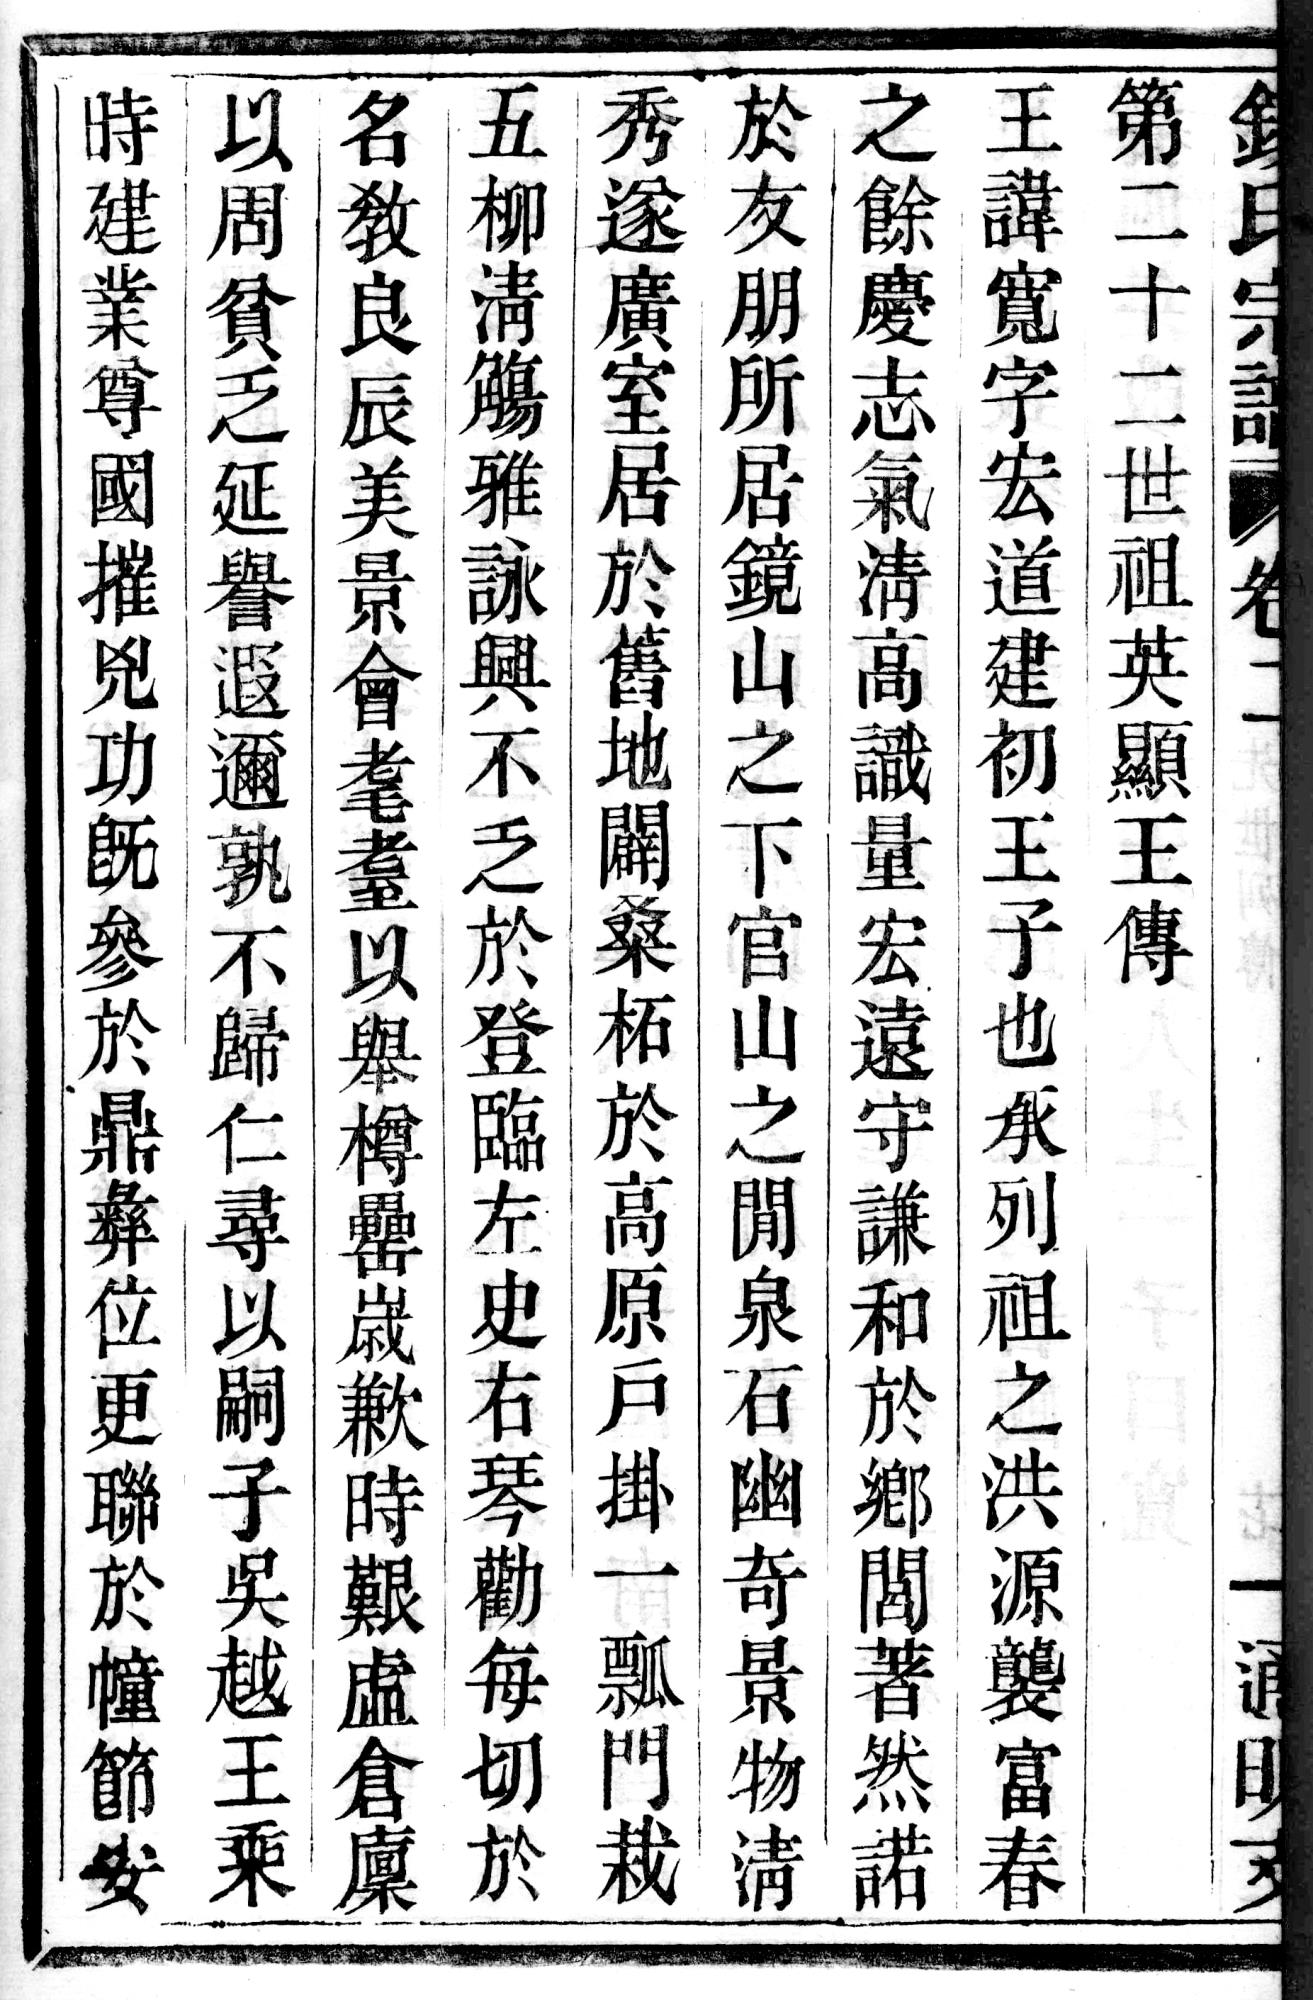 錢氏宗譜 卷二 一 通明
第二十二世祖英顯王傳
王諱寬字宏道建初王子也承列祖之洪源襲富春
之餘慶志氣淸高識量宏遠守謙和於鄉閭著然諾
於友朋所居鏡山之下官山之閒泉石幽奇景物淸
秀遂廣室居於舊地闢桑柘於高原戶掛一瓢門栽
五柳淸觴雅詠興不乏於登臨左史右琴勸每切於
名敎良辰美景會耄耋以舉樽罍歲歉時艱虛倉廩
以周貧乏延譽遐邇孰不歸仁尋以嗣子吳越王乘
時建業尊國摧兇功旣參於鼎彝位更聯於幢節安